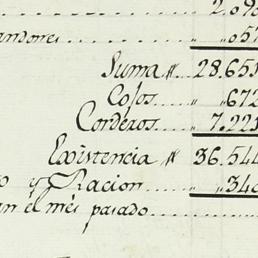 2.898
.057
Suma 28.651
Cojos 672
Corderos.... 7.221
Existencia 36.544
y Racion..... 348
en el més pasado